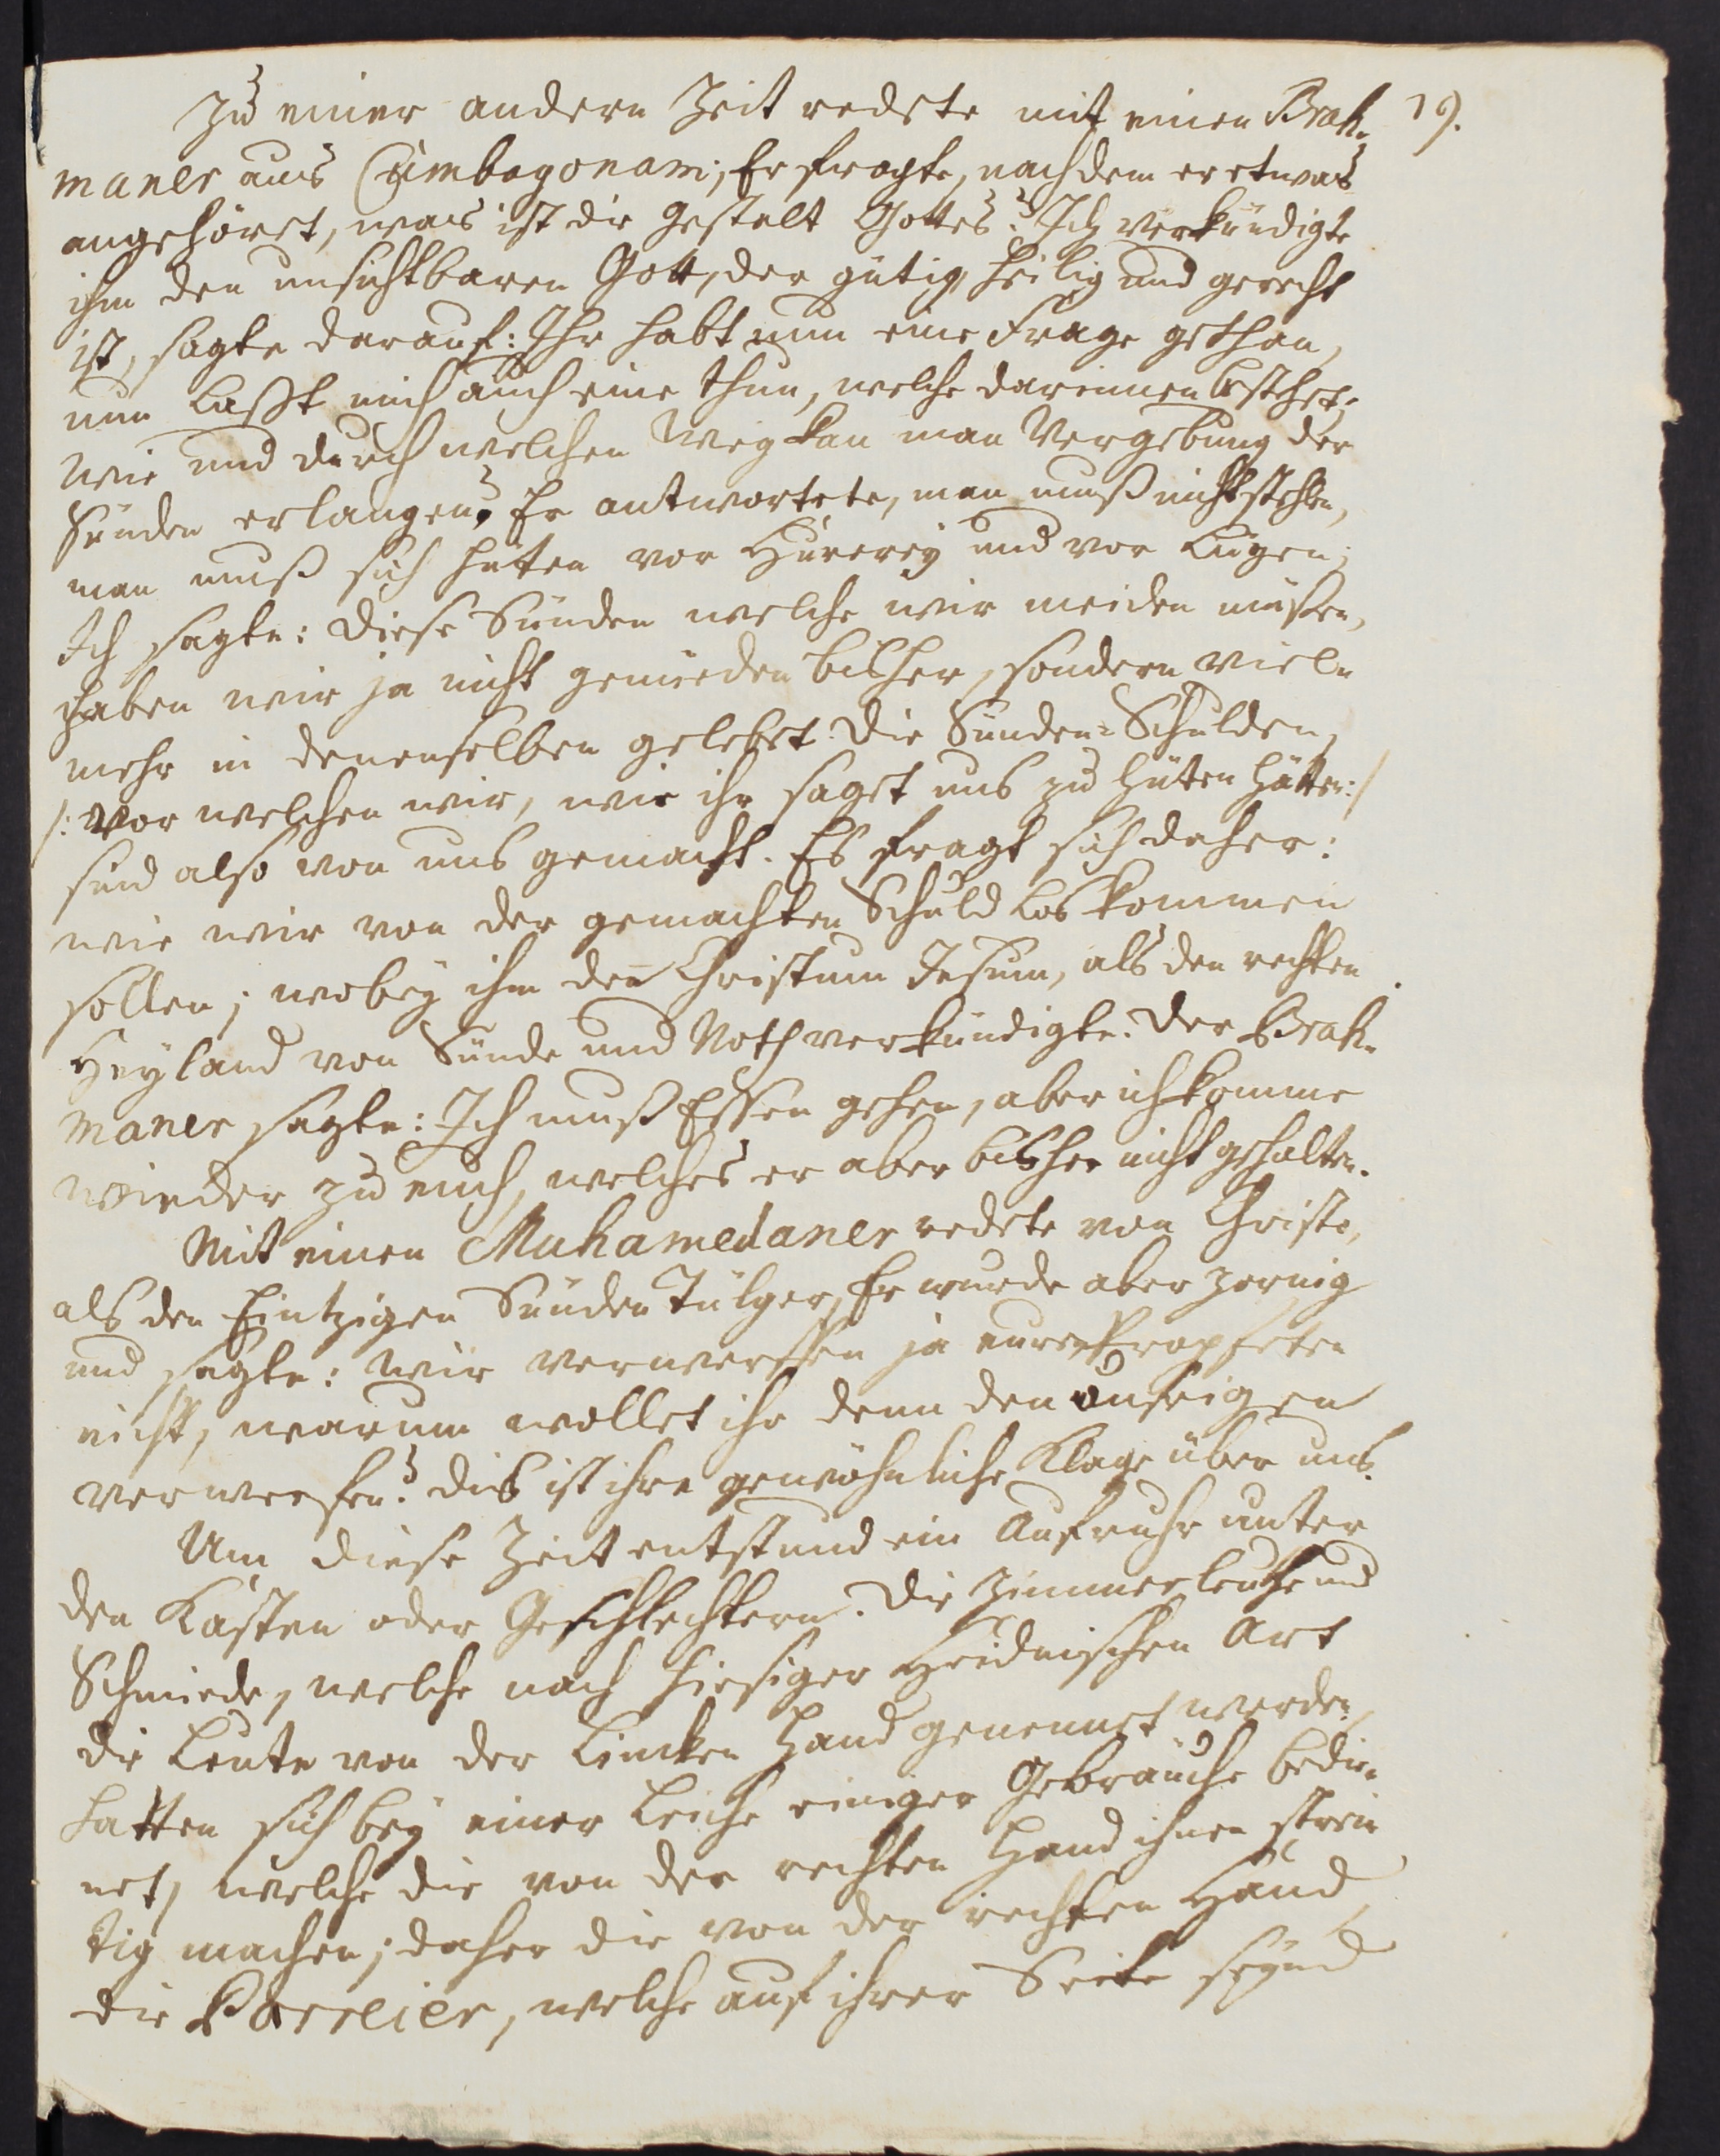 Zu einer andern Zeit redete mit einen Brah- 19.
maner aus Cumbagonam; Er fragte, nachdem er etwas
angehöret, was ist die gestalt Gottes? Ich verkündigte
ihm den unsichtbaren Gott, der gütig, heilig und gerecht
ist, sagte darauf: Ihr habt nun eine Frage gethan,
nun laßt mich auch eine thun, welche darinnen bestehet;
Wie und durch welchen Weg kan man Vergebung der
Sünden erlangen? Er antwortete, man muß nicht stehlen,
man muß sich hüten vor Hurerey und vor Lügen;
Ich sagte: diese Sünden welche wir meiden müßen,
haben wir ja nicht gemieden bißher, sondern viel-
mehr in denenselben gelebet. Die Sünden-Schulden,
/: vor welchen wir, wie ihr saget uns zu hüten hätten :/
sind also von uns gemacht. Es fragt sich daher:
wie wir von der gemachten Schuld loß kommen
sollen; wobey ihm den Christum Jesum, als den rechten
Heyland von Sünde und Noth verkündigte. Der Brah-
maner sagte: Ich muß Essen gehen, aber ich komme
wieder zu euch, welches er aber bißher nicht gehalten.
Mit einen Muhamedaner redete von Christo,
als den Eintzigen Sünden Tülger, Er wurde aber zornig
und sagte: Wir verwerffen ja euren Propheten
nicht, warum wollet ihr denn den unsrigen
verwerfen? diß ist ihre gewöhnliche Klage über uns.
Um diese Zeit entstund ein Aufruhr unter
den Casten oder Geschlechtern. Die Zimmerleuthe und
Schmiede, welche nach hiesiger Heidnischen Art
die Leute von der Lincken Hand genennet werden,
hatten sich bey einer Leiche einiger Gebräuche bedie-
net, welche die von der rechten Hand ihnen strei-
tig machen; daher die von der rechten Hand,
die Parreier, welche auf ihrer Seite seynd